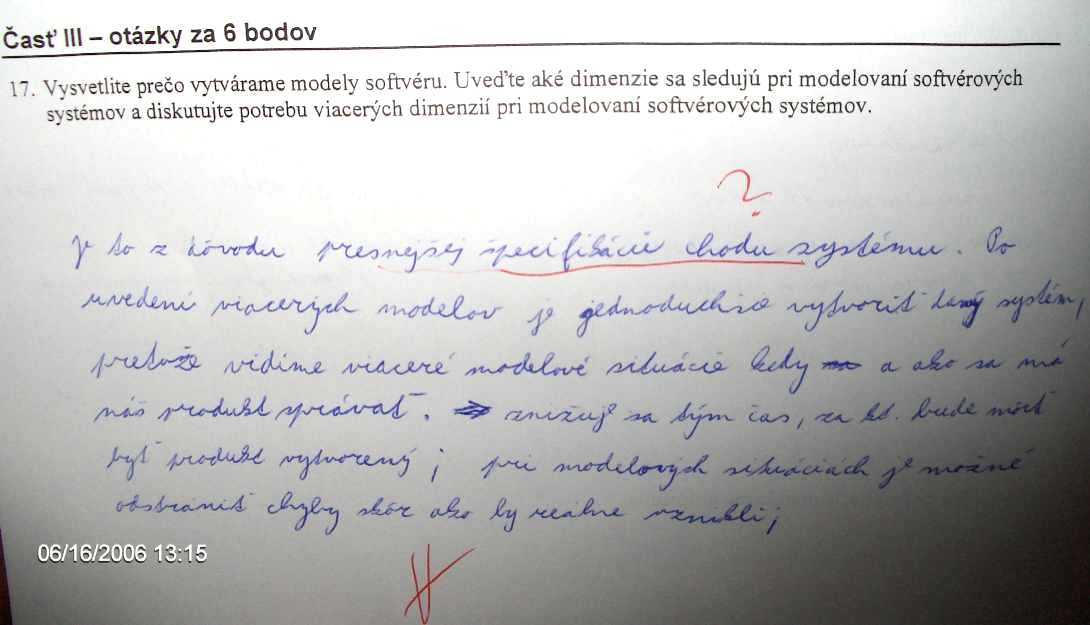 Časť III – otázky za 6 bodov
17. Vysvetlite prečo vytvárame modely softvéru. Uveďte aké dimenzie sa sledujú pri modelovaní softvérových
systémov a diskutujte potrebu viacerých dimenzií pri modelovaní softvérových systémov.
?
Je to z dôvodu presnejšej špecifikácie chodu systému. Po
uvedení viacerých modelov je jednoduchšie vytvoriť daný systém,
pretože vidíme viaceré modelové situácie kedy a ako sa má
náš produkt správať. znižuje sa tým čas, za kt. bude môcť
byť produkt vytvorený; pri modelových situáciách je možné
odstrániť chyby skôr ako by reálne vznikli;
06/16/2006 13:15